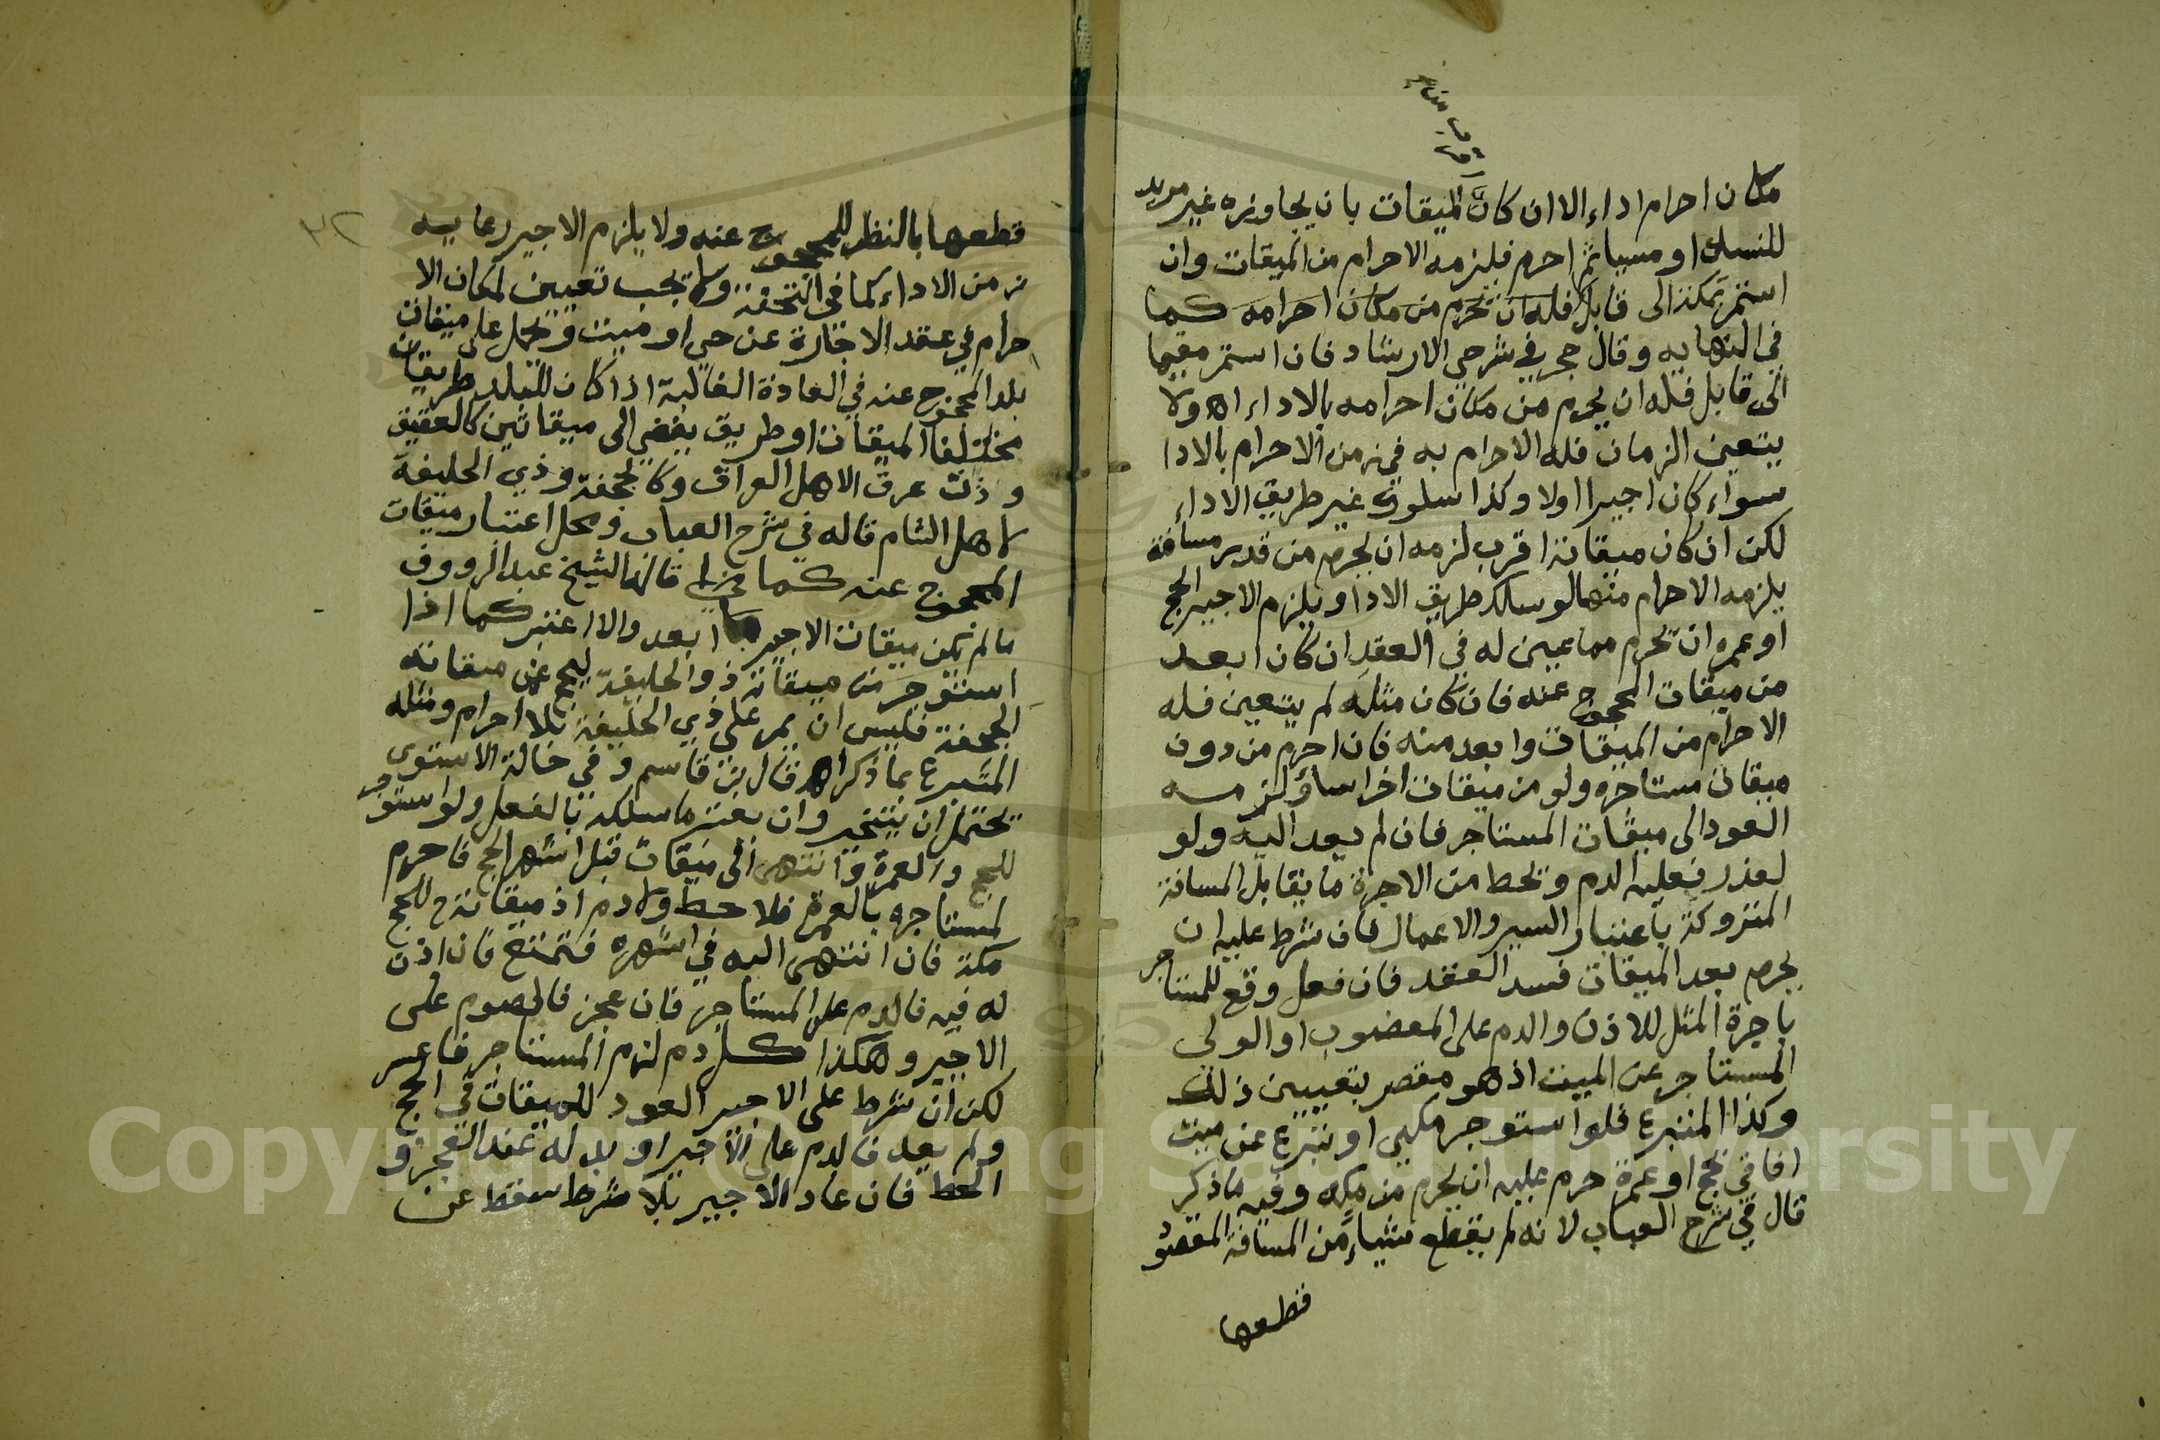 مكان احرام اداء الا ان كان الميقات بان يجاوزه غير مريد
للنسك او مسيا ثم احرم فيلزمه الاحرام من الميقات وان
استمر بمكة الى قابل فله ان يحرم من مكان احرامه كما
في النهايه وقال حجر في شرحي الارشاد فان استمر مقيما
الى قابل فله ان يحرم من مكان احرامه بالاداء اه ولا
يتعين الزمان فله الاحرام به في زمن الاحرام بالادا
سواء كان اجيرا اولا وكذا سلوك غير طريق الاداء
لكن ان كان ميقاته اقرب لزمه ان يحرم من قدر مسافة
يلزمه الاحرام منها لو سلك طريق الادا ويلزم الاجير الحج
او عمره ان يحرم مما عين له في العقد ان كان ابعد
من ميقات المحجوج عنه فان كان مثله لم يتعين فله
الاحرام من الميقات وابعد منه فان احرم من دون
ميقات مستاجره ولو من ميقات اخر اساء ولزمه
العود الى ميقات المستاجر فان لم يعد اليه ولو
لعذر فعليه الدم ويحط من الاجرة ما يقابل المسافة
المتروكة باعتبار السير والاعمال فان شرط عليه ان
يحرم بعد الميقات فسد العقد فان فعل وقع للمستاجر
باجرة المثل للاذن والدم على المعضوب او الولي
المستاجر عن الميت اذ هو مقصر بتعيين ذلك
وكذا المتبرع فلو استوجر مكي او تبرع عن ميت
افاقي بحج او عمرة حرم عليه ان يحرم من مكه وفيه ما ذكر
قال في شرح العباب لانه لم يقطع شياء من المسافة المقصود
قطعها
٣٢
قطعها بالنظر للمحجوج عنه ولا يلزم الاجير رعايه
زمن الاداء كما في التحفة ولا يجب تعيين لمكان الا
حرام في عقد الاجارة عن حي او ميت ويحمل على ميقات
بلد المحجوج عنه في العادة الغالبة اذا كان للبلد طريقان
مختلفا الميقات او طريق يفضي الى ميقاتين كالعقيق
وذات عرق لاهل العراق وكالجحفة وذي الحليفة
لاهل الشام قاله في شرح العباب ومحل اعتبار ميقات
المحجوج عنه كما قال الشيخ عبد الرووف
ما لم يكن ميقات الاجير ابعد والا اعتبر كما اذا
استوجر من ميقاته ذو الحليفة ليحج عمن ميقاته
الجحفة فليس ان يمر على ذي الحليفة بلا احرام ومثله
المتبرع بما ذكر اه قال بن قاسم وفي حالة الاستوى
يحتمل ان يتخير وان يعتبر ما سلكه بالفعل ولو استوجر
للحج والعمرة وانتهى الى ميقات قبل اشهر الحج فاحرم
لمستاجره بالعمرة فلا حط ولا دم اذ ميقاته ح للحج
مكة فان انتهى اليه في اشهره فتمتع فان اذن
له فيه فالدم على المستاجر فان عجز فالصوم على
الاجير وهكذا كل دم لزم المستاجر فاعسر
لكن ان شرط على الاجير العود للميقات في الحج
ولم يعد فالدم على الاجير او بدله عند العجز و
الحط فان عاد الاجير بلا شرط سقط عن
Copyright © King Saud University